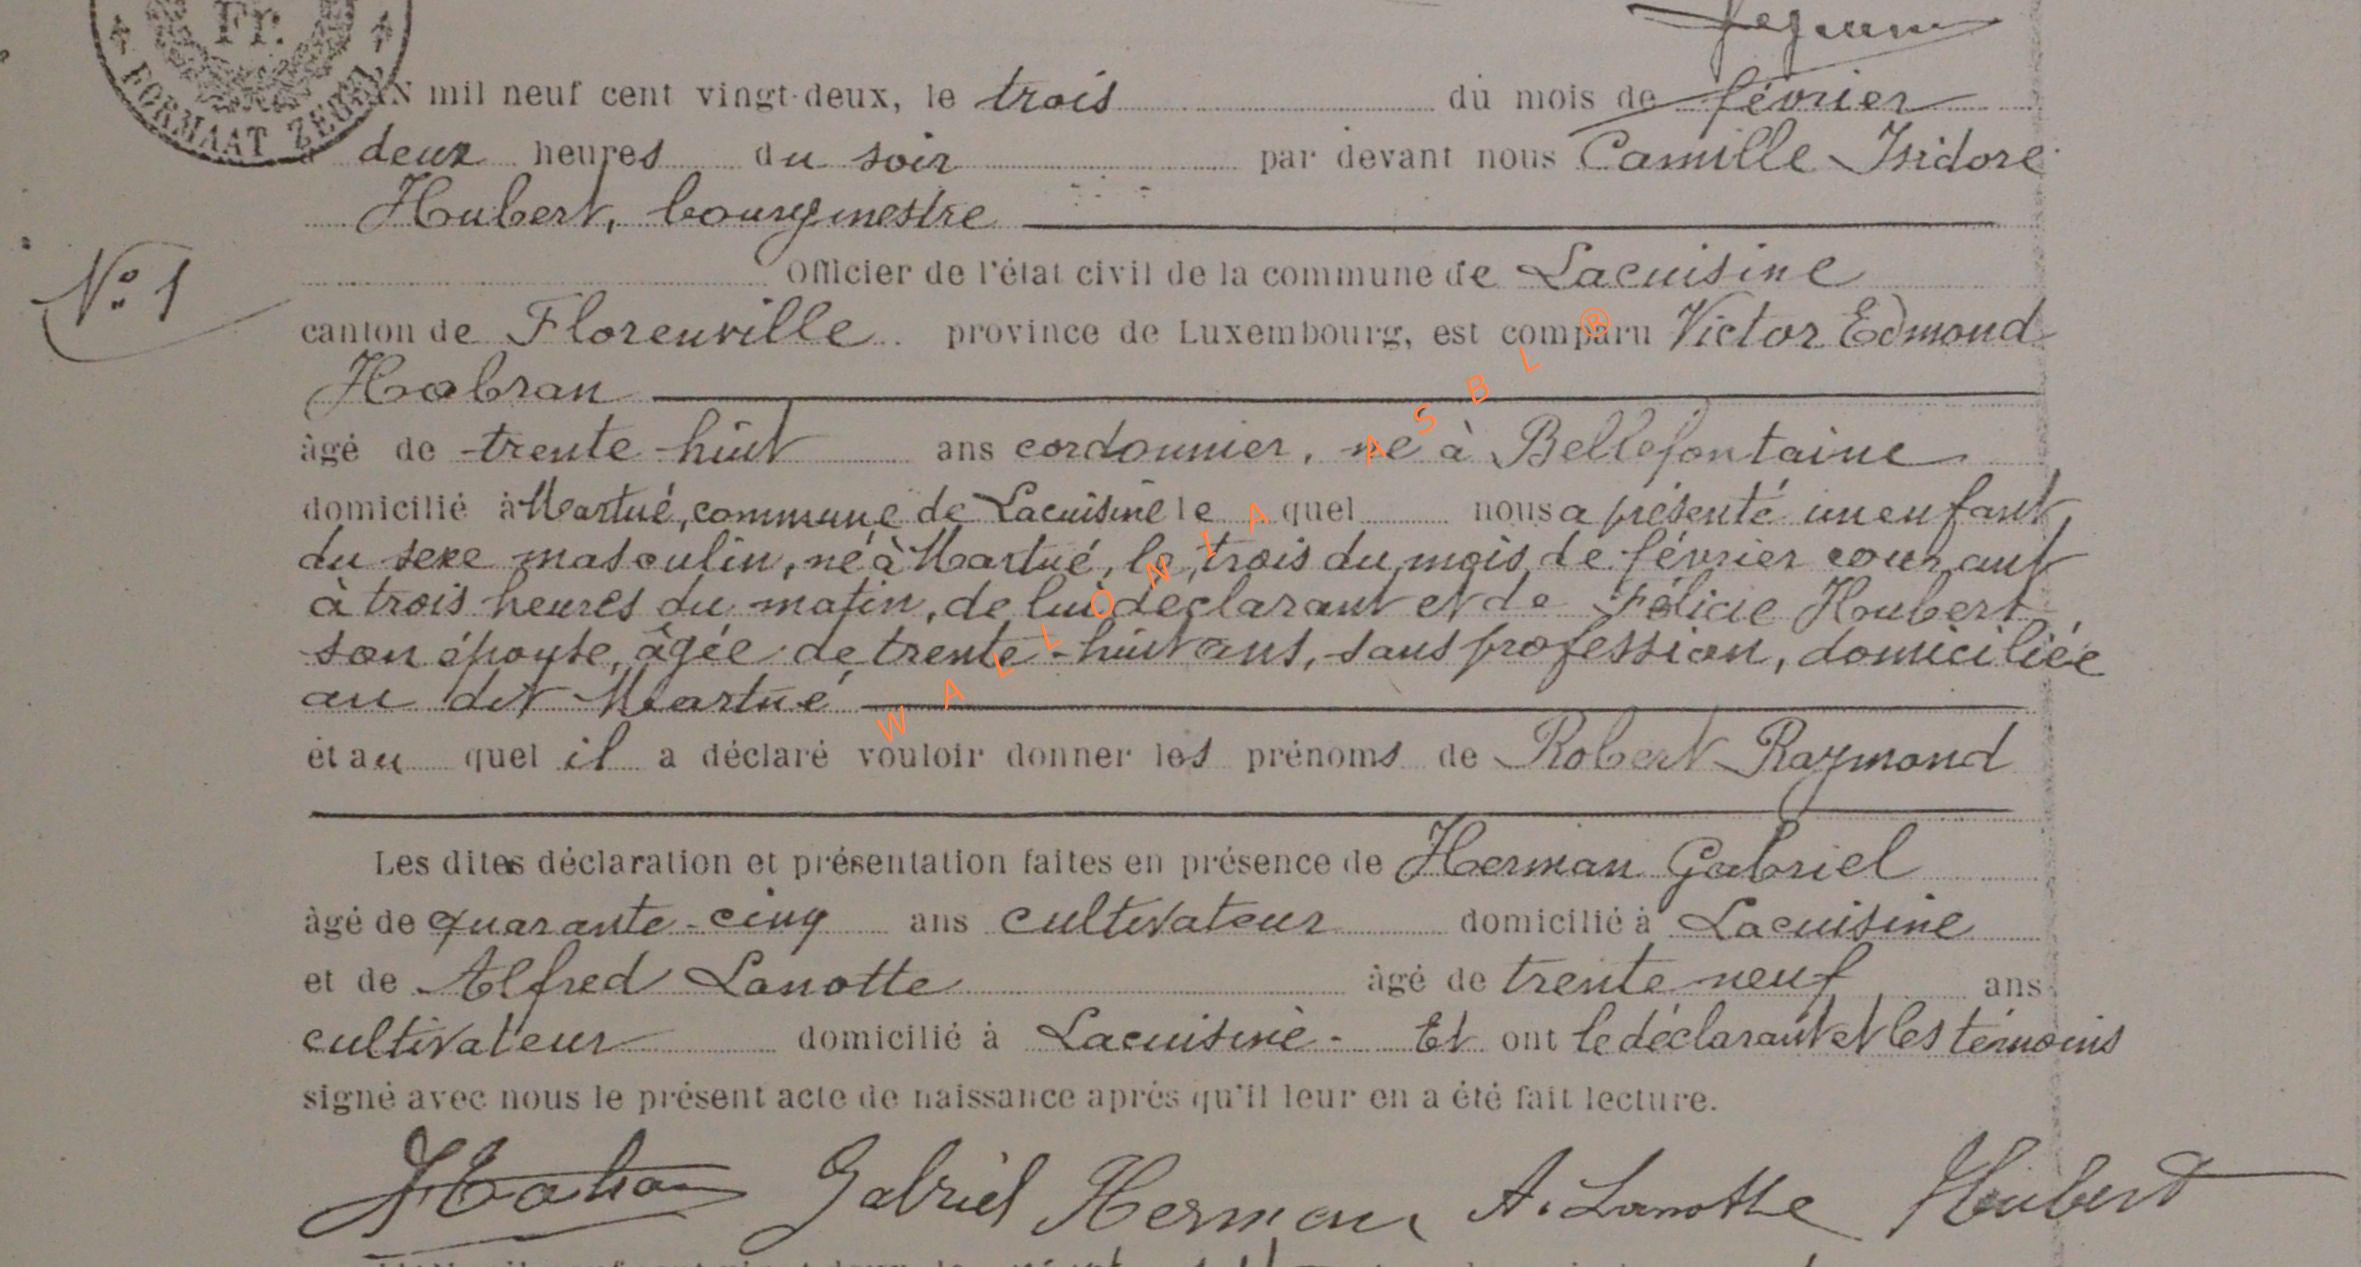 Fr.
FORMAAT ZEGEL
AN mil neuf cent vingt-deux, le trois du mois de février
à deux heures du soir par devant nous Camille Isidore
Hubert, bourgmestre
Officier de l'état civil de la commune de Lacuisine
N° 1
canton de Florenville province de Luxembourg, est comparu Victor Edmond
Habran
âgé de trente-huit ans cordonnier, né à Bellefontaine
domicilié à Martué, commune de Lacuisine lequel nous a présenté un enfant
du sexe masculin, né à Martué, le trois du mois de février courant
à trois heures du matin, de lui déclarant et de Félicie Houbert
son épouse, âgée de trente-huit ans, sans profession, domiciliée
au dit Martué
et auquel il a déclaré vouloir donner les prénoms de Robert Raymond
Les dites déclaration et présentation faites en présence de Herman Gabriel
âgé de quarante-cinq ans cultivateur domicilié à Lacuisine
et de Alfred Lanotte âgé de trente neuf ans
cultivateur domicilié à Lacuisine. Et ont le déclarant et les témoins
signé avec nous le présent acte de naissance après qu'il leur en a été fait lecture.
Habran Gabriel Herman A. Lanotte Hubert
WALLONIA ASBL ®